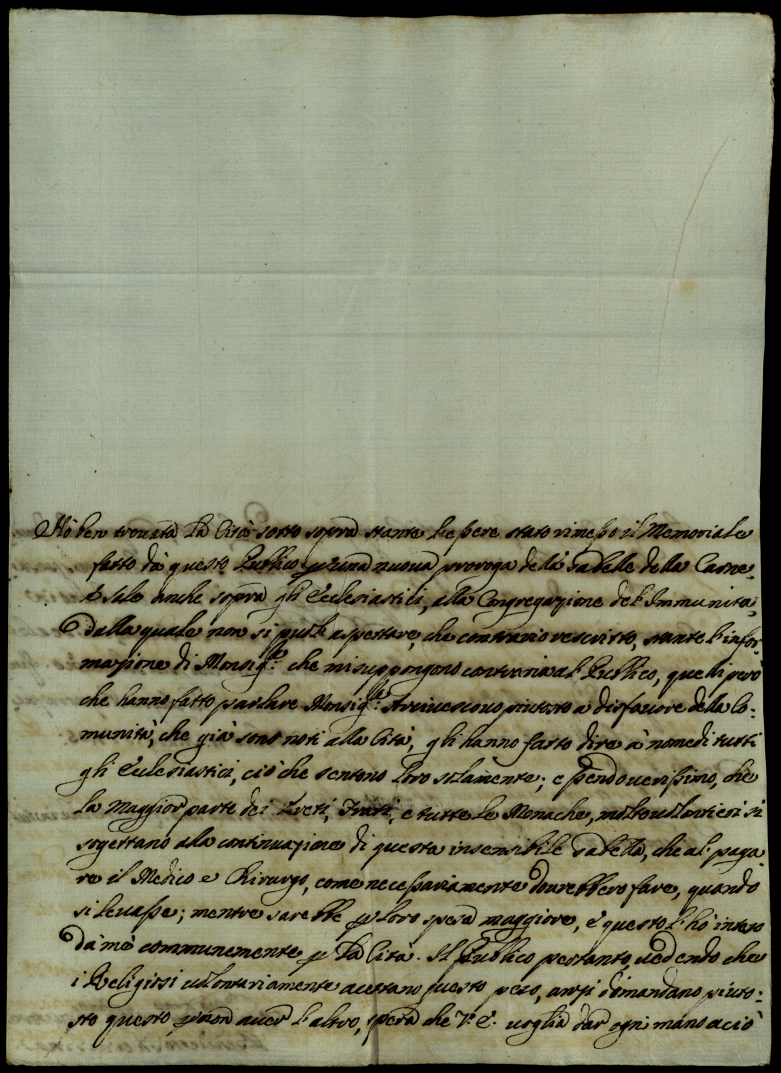 Hò ben trovata la Città sotto sopra stante l'essere stato rimesso il Memoriale
fatto da questo Publico per una nuova proroga della Gabella della Carne,
e sale anche sopra gli Ecclesiastici, alla Congregazione del'Immunita,
dalla quale non si può aspettare, che contrario rescritto, stante l'infor-
mazione di Monsig.r che mi suppongono contraria al Publico, quelli però
che hanno fatto parlare Monsig.r Arcivescovo piutosto a disfavore della Co-
munità, che già sono noti alla Città, gli hanno fatto dire à nome di tutti
gli Ecclesiastici, ciò che sentono loro solamente; essendo verissimo, che
la maggior parte dei Preti, Frati, e tutte le Monache, molto volontieri si
sogettano alla continuazione di questa insensibile Gabella, che al paga-
re il Medico e Chirurgo, come necessariamente dovrebbero fare, quando
si levasse; mentre sarebbe per loro spesa maggiore, e questo l'hò inteso
da mè communemente per la Città. Il Publico pertanto vedendo che
i Religiosi volontariamente accettano questo peso, anzi dimandano piuto-
sto questo per non aver l'altro, spera che V. E. voglia dar ogni mano acciò